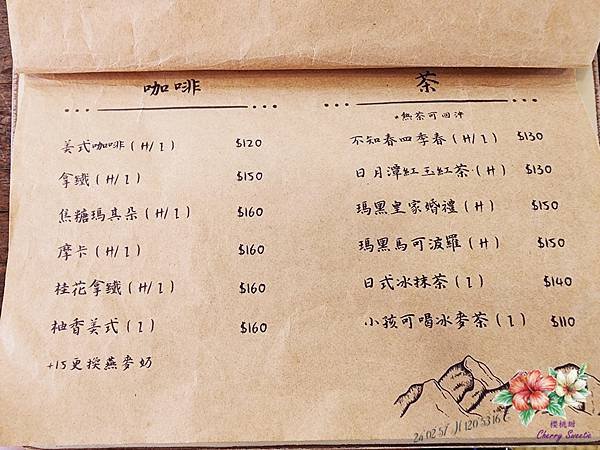 咖啡
美式咖啡(H/I) $120
拿鐵(H/I) $150
焦糖瑪其朵(H/I) $160
摩卡(H/I) $160
桂花拿鐵(H/I) $160
柚香美式(I) $160
+15更換燕麥奶
茶
*熱茶可回沖
不知春四季春(H/I) $130
日月潭紅玉紅茶(H) $130
瑪黑皇家婚禮(H) $150
瑪黑馬可波羅(H) $150
日式冰抹茶(I) $140
小孩可喝冰麥茶(I) $110
櫻桃甜
Cherry Sweetie